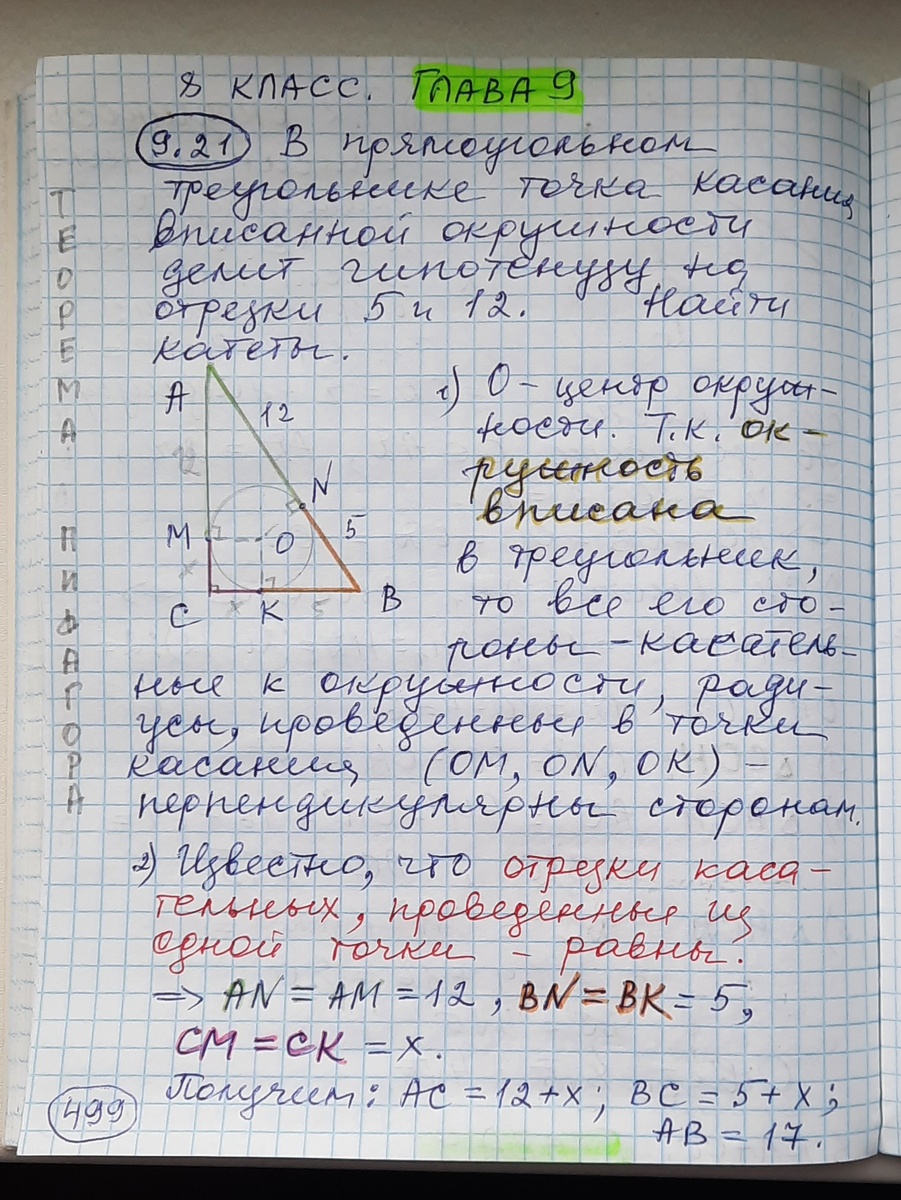 8 КЛАСС. ГЛАВА 9
9.21 В прямоугольном
треугольнике точка касания
вписанной окружности
делит гипотенузу на
отрезки 5 и 12. Найти
катеты.
ТЕОРЕМА ПИФАГОРА
A
12
12
N
M
O
5
x
C
x
K
5
B
1) О - центр окруж-
ности. Т.к. ок-
ружность
вписана
в треугольник,
то все его сто-
роны - касатель-
ные к окружности, ради-
усы, проведенные в точки
касания (OM, ON, OK) -
перпендикулярны сторонам.
2) Известно, что отрезки каса-
тельных, проведенные из
одной точки - равны.
=> AN = AM = 12, BN = BK = 5,
CM = CK = x.
Получим: AC = 12 + x; BC = 5 + x;
AB = 17.
499